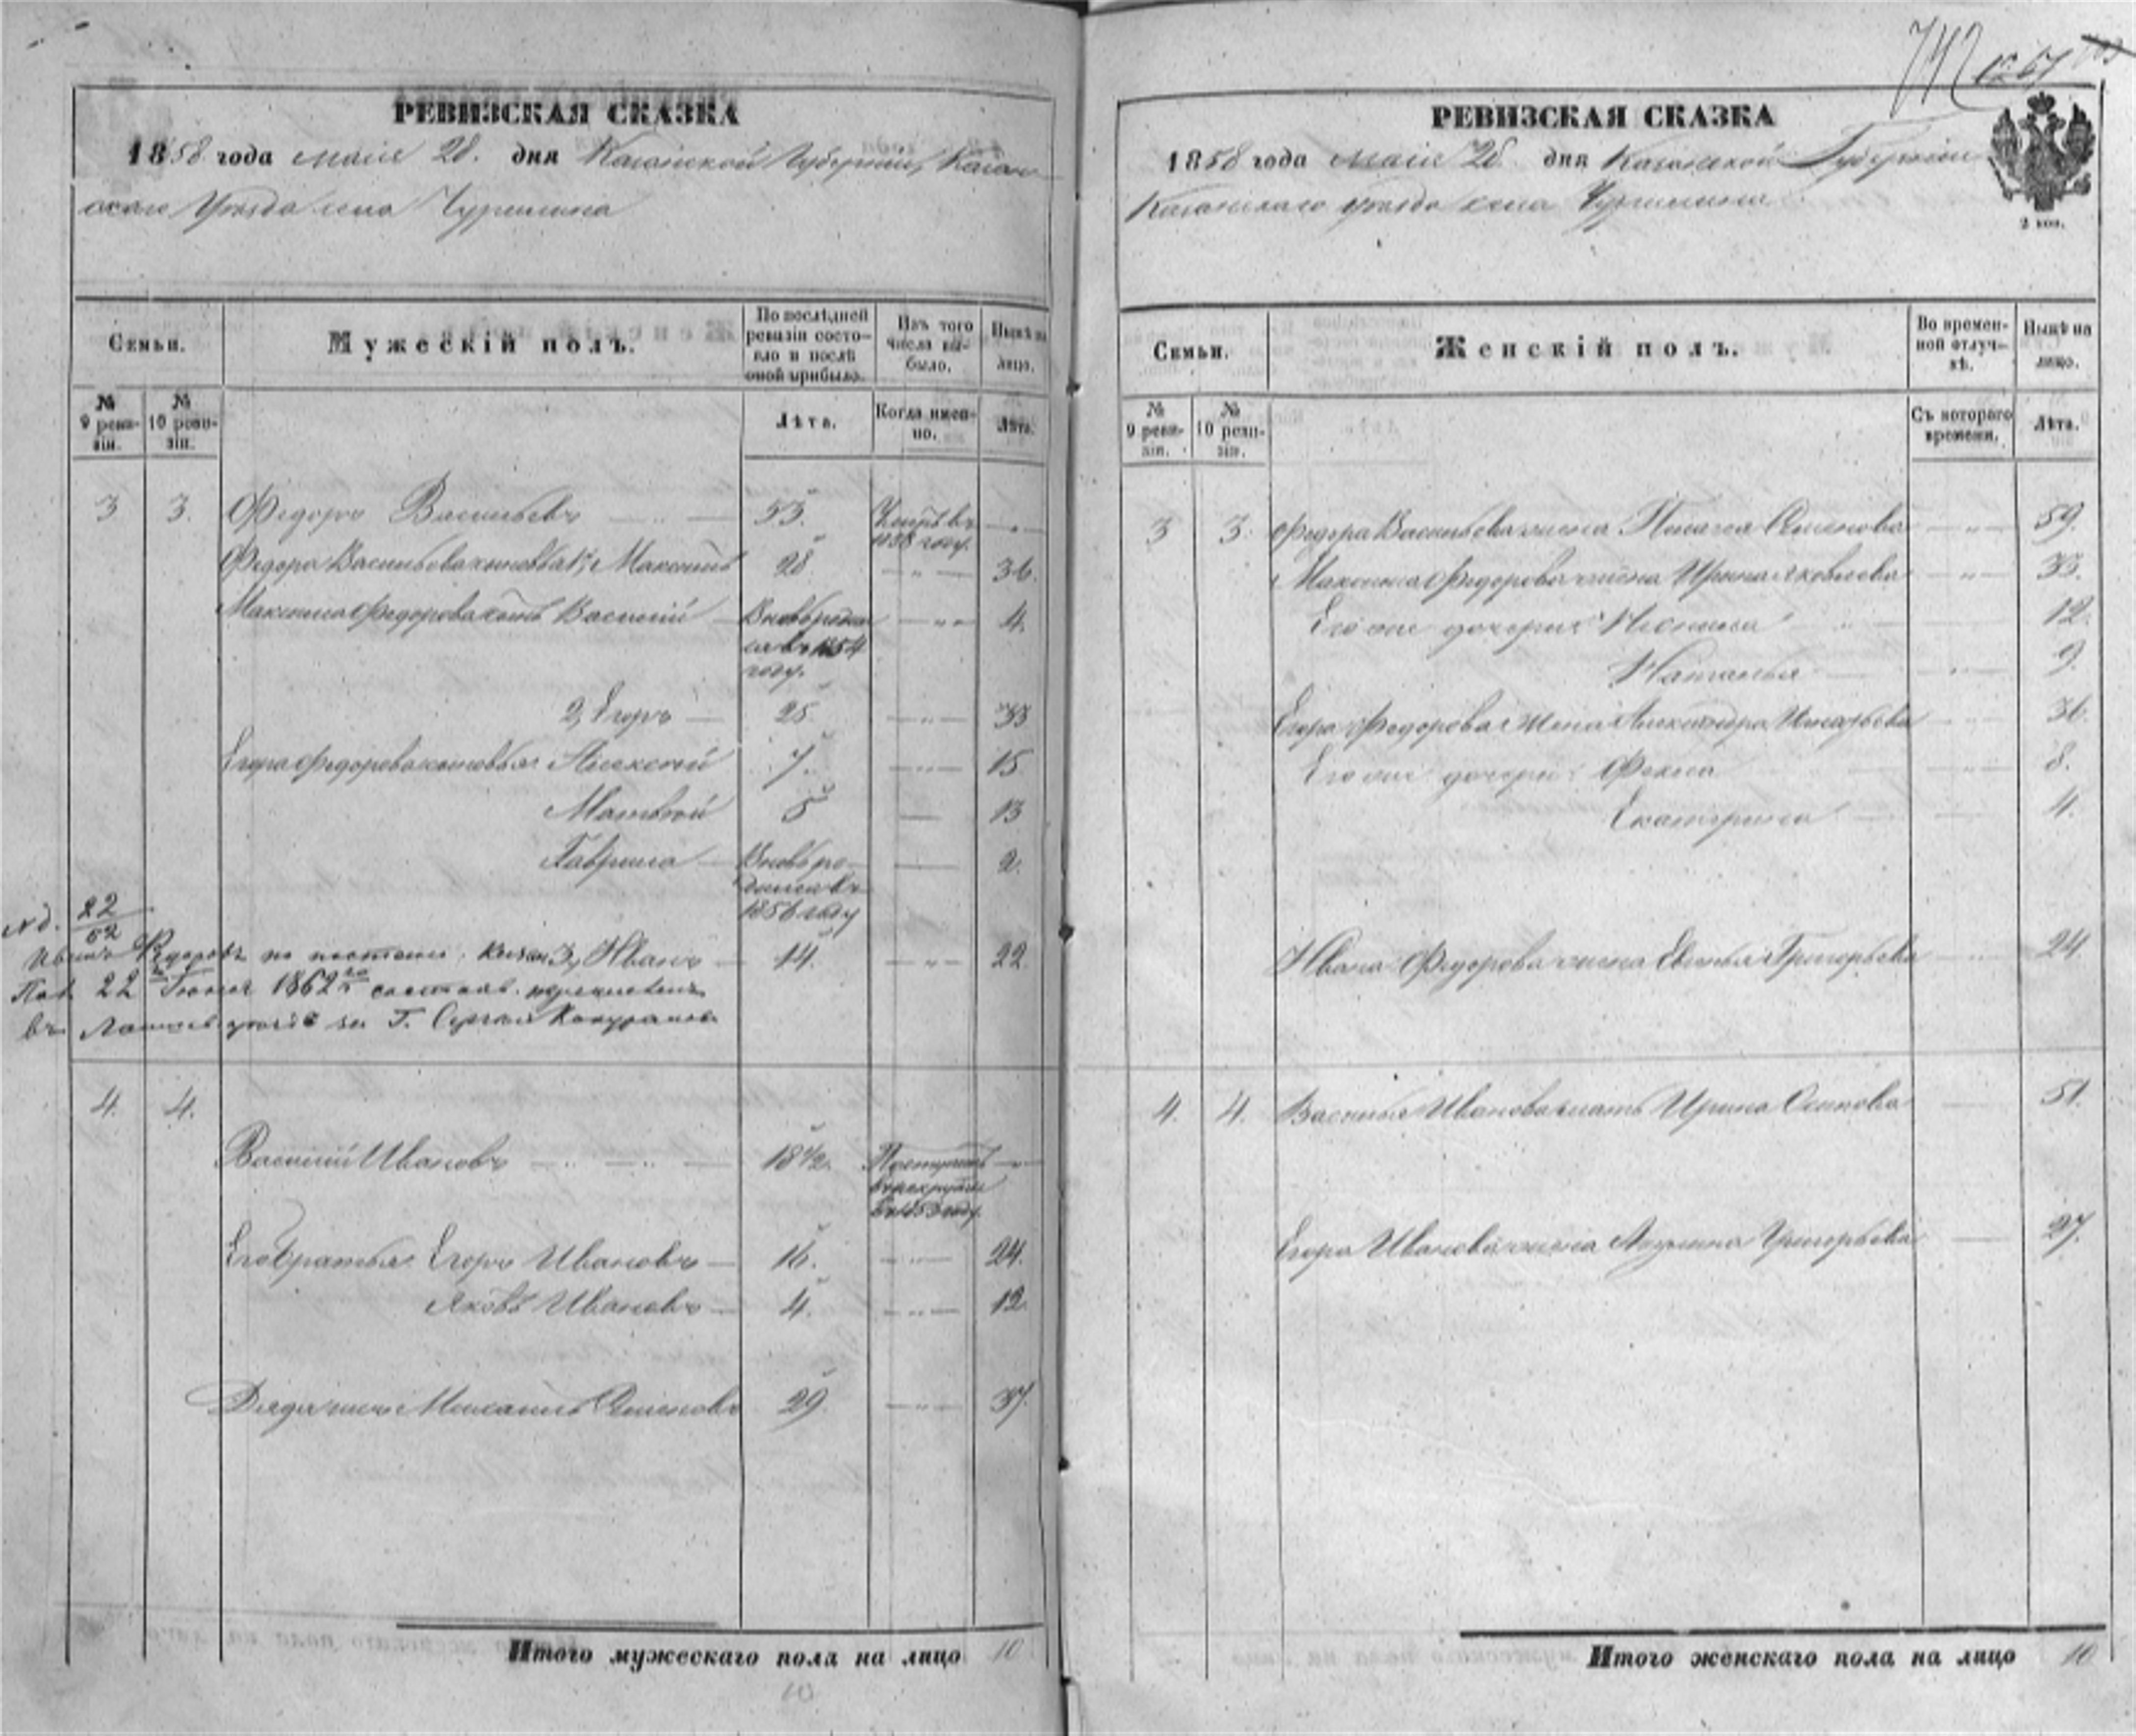 РЕВИЗСКАЯ СКАЗКА
1858 года маія 28. дня Казанской Губерніи, Казан-
скаго Уѣзда села Чурилина
Семьи.
Мужескій полъ.
По послѣдней ревизіи состояло и послѣ оной прибыло.
Изъ того числа выбыло.
Нынѣ на лицо.
№ 9 ревизіи.
№ 10 ревизіи.
Лѣта.
Когда именно.
Лѣта.
3 3. Федоръ Васильевъ 53. Умеръ въ 1858 году.
Федора Васильева сыновья 1, Максимъ 28 36.
Максима Федорова сынъ Василій Вновь рожден въ 1854 году. 4.
2, Егоръ 25 33
Егора Федорова сыновья Алексей 7. 15
Матвѣй 5 13
Гаврила Вновь родился въ 1856 году 2.
22
52
Иванъ Федоровъ по 3, Иванъ 14. 22.
22 1862
въ Г. Сергея
4. 4.
Василій Ивановъ 18 1/2. Поступилъ въ рекруты въ 1853 году.
Его братья Егоръ Ивановъ 16. 24.
Яковъ Ивановъ 4. 12.
Дядя Семеновъ 29. 37.
Итого мужескаго пола на лицо 10
742
РЕВИЗСКАЯ СКАЗКА
1858 года маія 28 дня Казанской Губерніи
Казанскаго уѣзда села Чурилина
2 коп.
Семьи.
Женскій полъ.
Во временной отлучкѣ.
Нынѣ на лицо.
№ 9 ревизіи.
№ 10 ревизіи.
Съ котораго времени.
Лѣта.
3 3. Федора Васильева жена Пелагея Семенова 59.
Максима Федорова жена Ирина Яковлева 33.
Его же дочери 12.
Наталья 9.
Егора Федорова жена Александра 36.
Его же дочери: Фекла 8.
Екатерина 4.
Ивана Федорова жена Евгенья Григорьева 24.
4. 4. Василья Иванова мать Ирина Осипова 51.
Егора Иванова жена Акулина Григорьева 27.
Итого женскаго пола на лицо 10